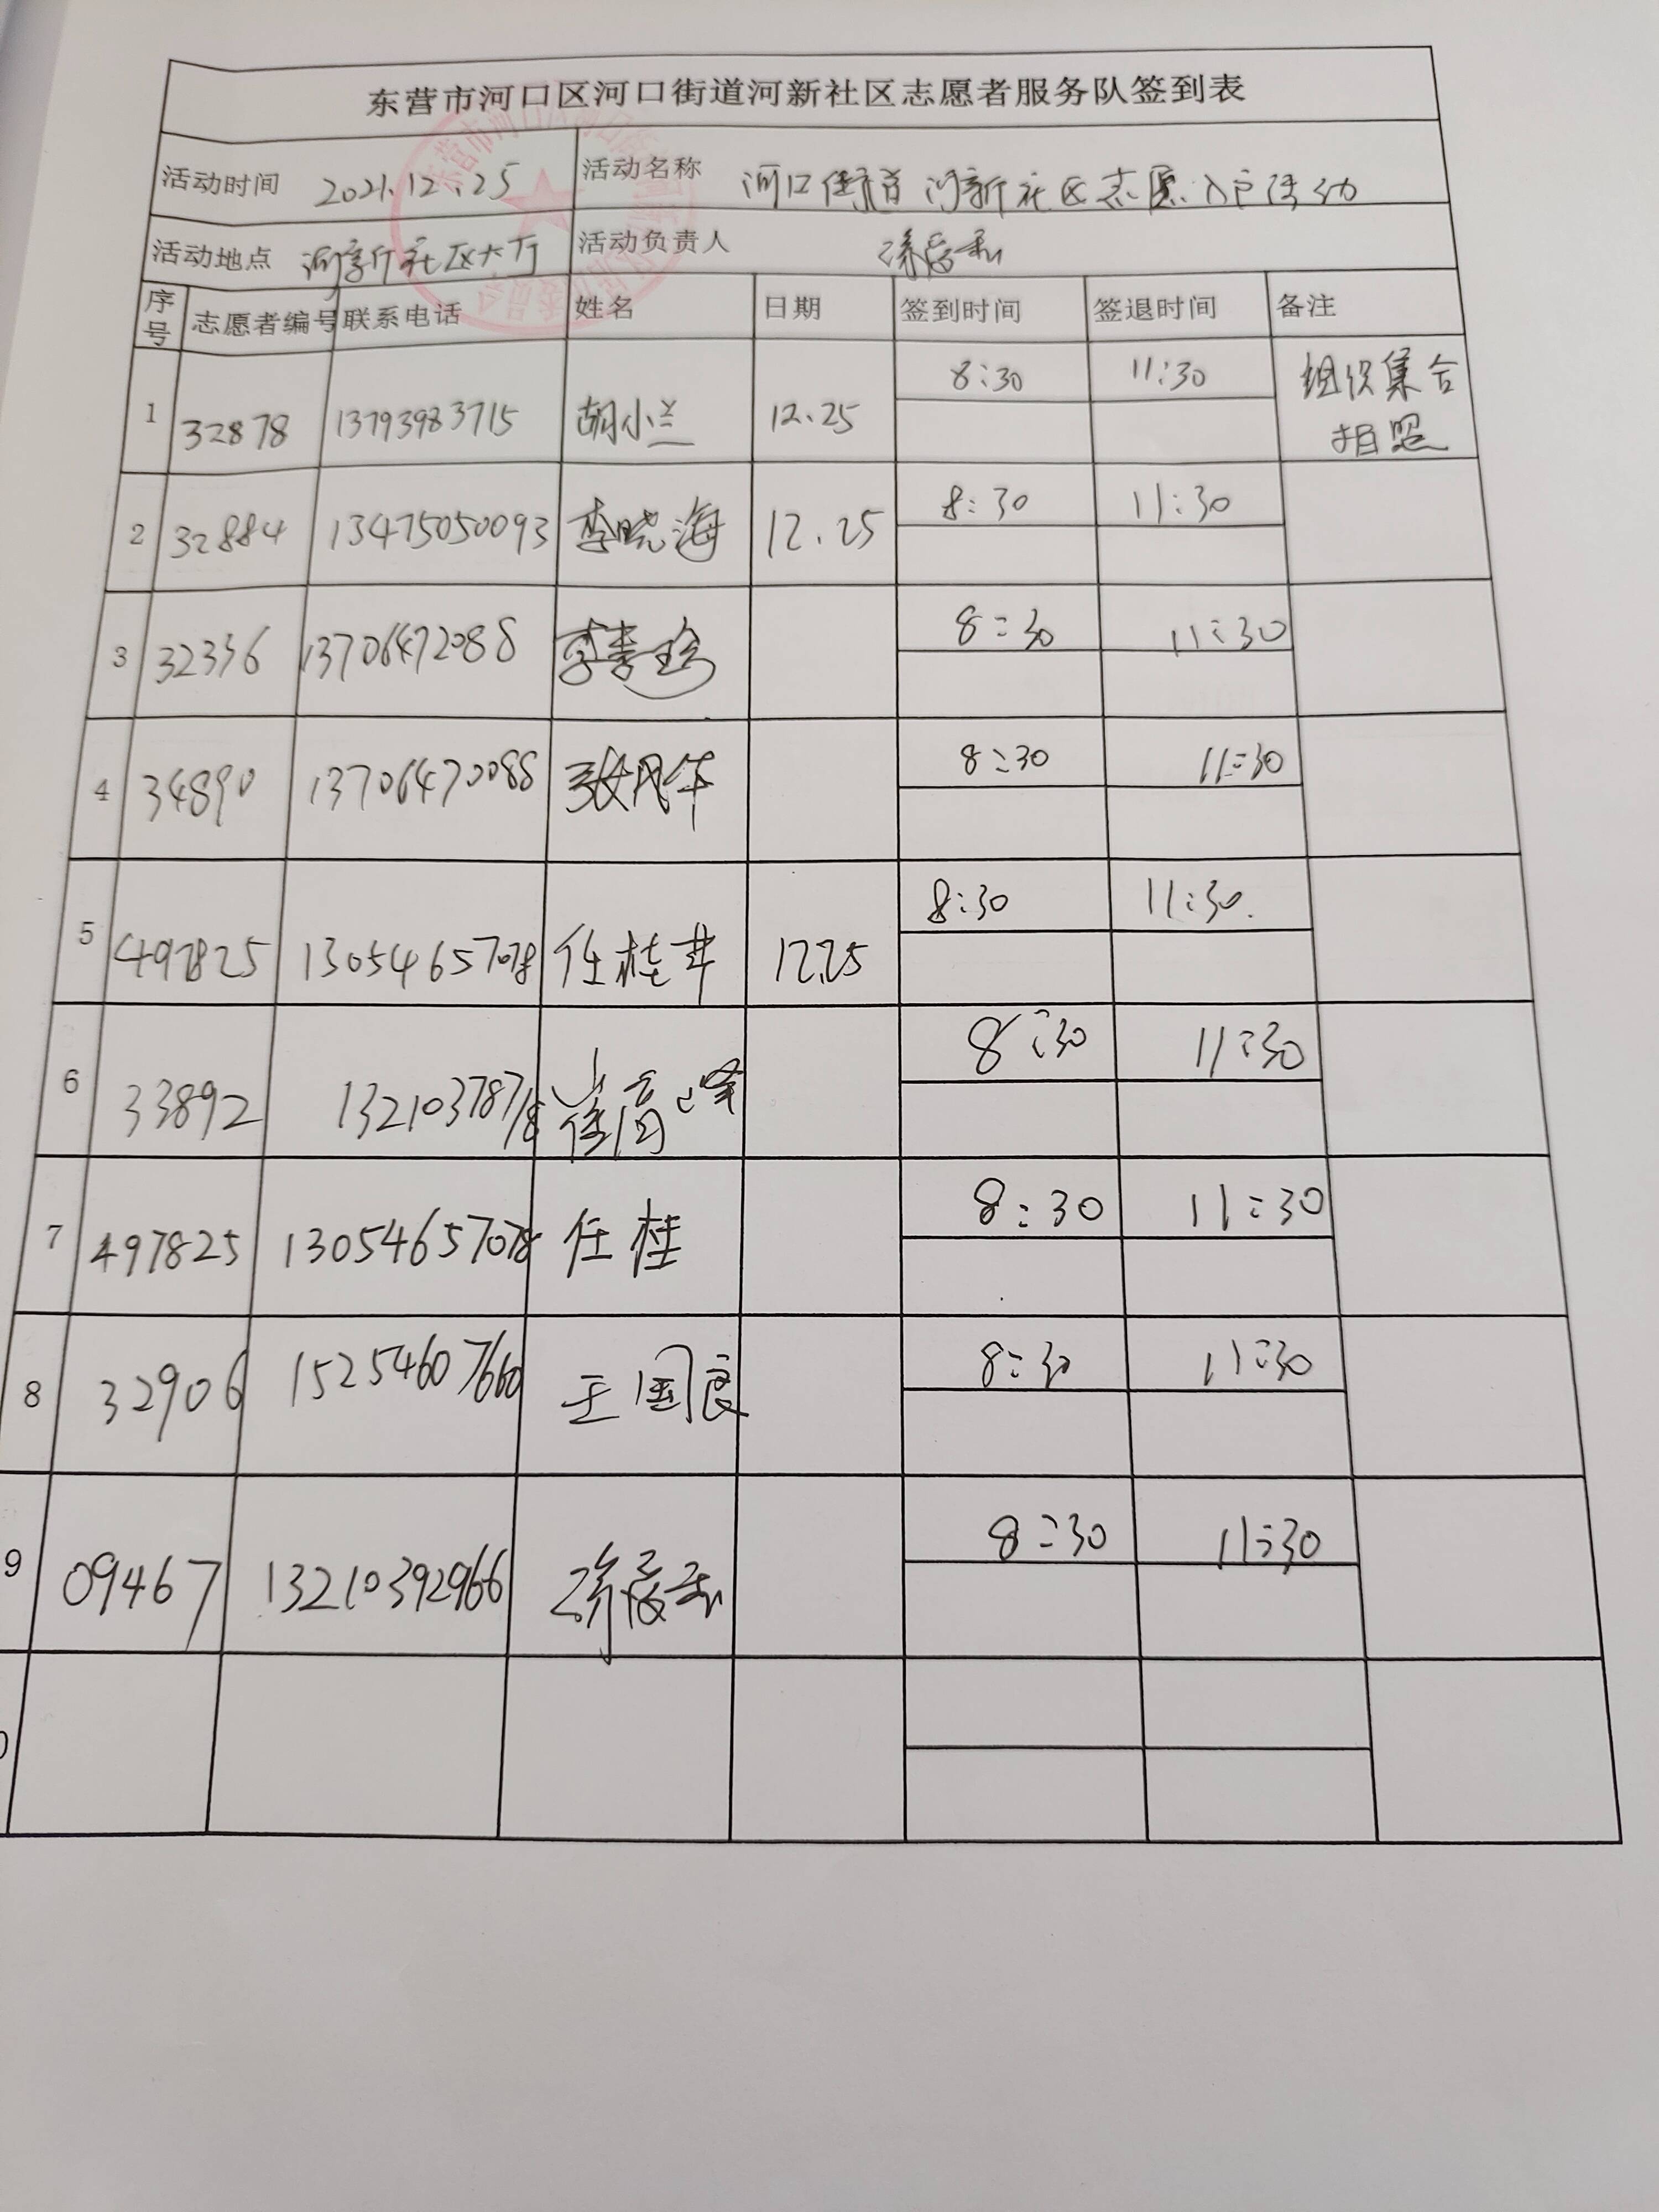 东营市河口区河口街道河新社区志愿者服务队签到表
活动时间 2021.12.25 活动名称 河口街道河新社区志愿入户活动
活动地点 河新社区大厅 活动负责人
序号 志愿者编号 联系电话 姓名 日期 签到时间 签退时间 备注
1 32878 13793983715 胡小兰 12.25 8:30 11:30 组织集合
拍照
2 32884 13475050093 李晓海 12.25 8:30 11:30
3 32336 13706472088 8:30 11:30
4 34890 13706470088 8:30 11:30
5 497825 13054657078 任桂 12.25 8:30 11:30
6 33892 13210378718 崔高峰 8:30 11:30
7 497825 13054657078 任桂 8:30 11:30
8 32906 15254607660 王国良 8:30 11:30
9 09467 13210392966 8:30 11:30